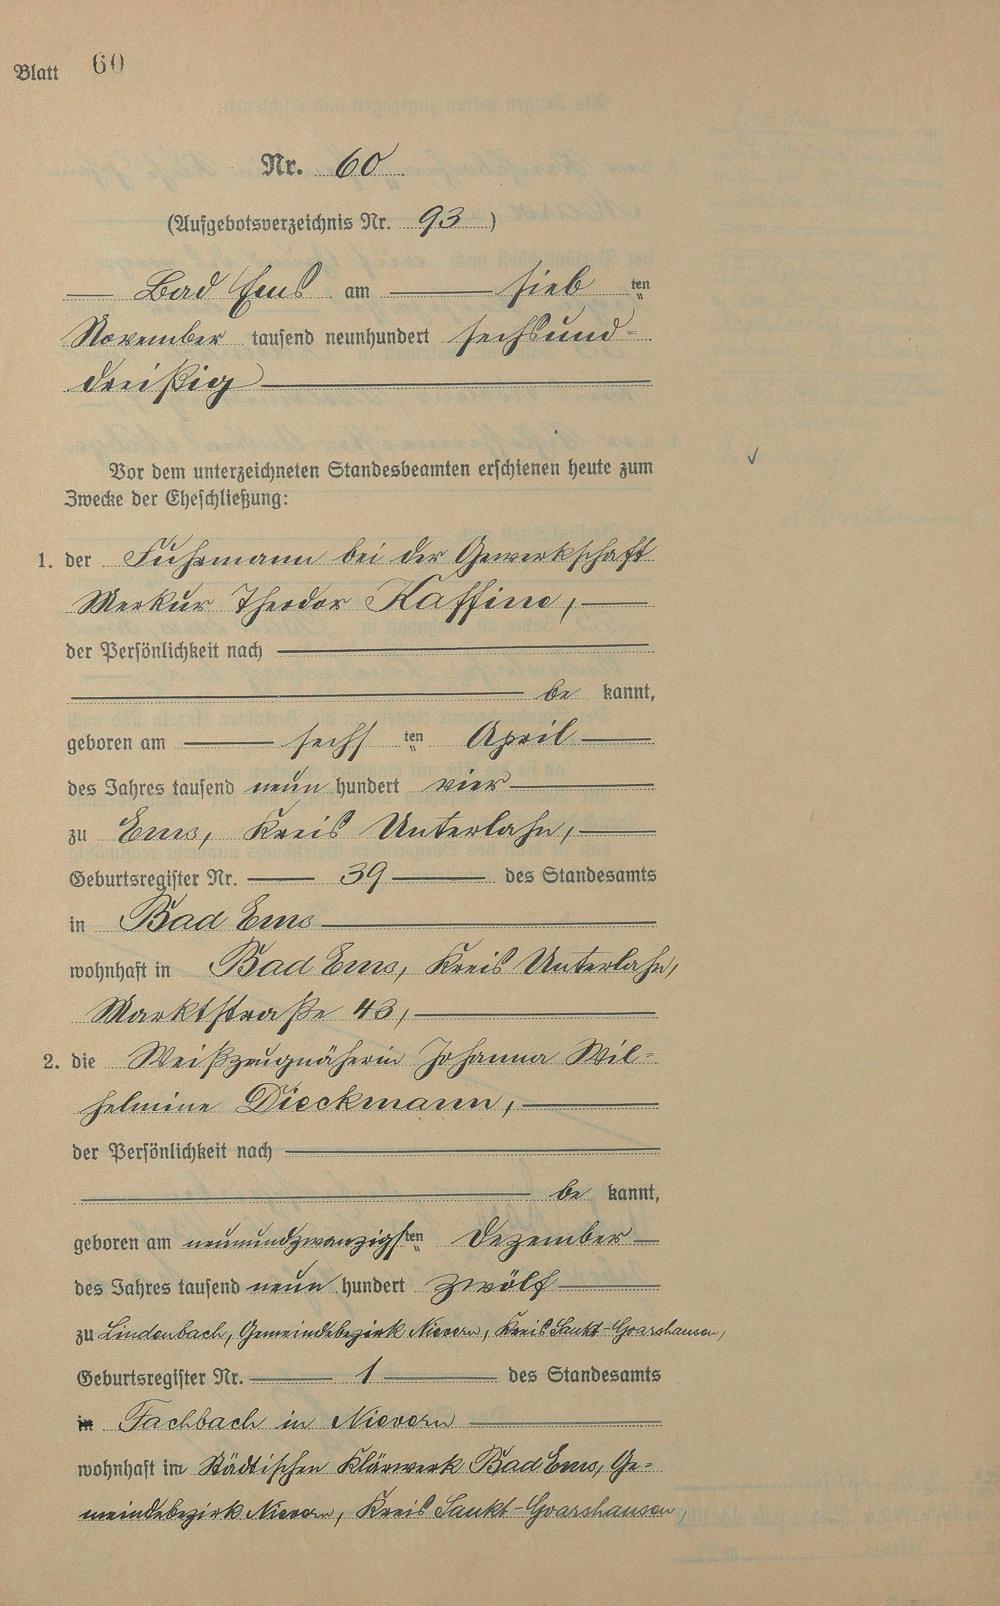 Blatt 60
Nr. 60
(Aufgebotsverzeichnis Nr. 93)
Bad Ems am sieb ten
November tausend neunhundert sechsund=
dreißig
Vor dem unterzeichneten Standesbeamten erschienen heute zum
Zwecke der Eheschließung:
1. der Fuhrmann bei der Gewerkschaft
Merkur Theodor Kaffine,
der Persönlichkeit nach
be kannt,
geboren am sechs ten April
des Jahres tausend neun hundert vier
zu Ems, Kreis Unterlahn,
Geburtsregister Nr. 39 des Standesamts
in Bad Ems
wohnhaft in Bad Ems, Kreis Unterlahn,
Marktstraße 43,
2. die Weißzeugnäherin Johanna Wil=
helmine Dieckmann,
der Persönlichkeit nach
be kannt,
geboren am neunundzwanzigsten Dezember
des Jahres tausend neun hundert zwölf
zu Lindenbach, Gemeindebezirk Nievern, Kreis Sankt-Goarshausen,
Geburtsregister Nr. 1 des Standesamts
in Fachbach in Nievern
wohnhaft im Städtischen Klärwerk Bad Ems, Ge=
meindebezirk Nievern, Kreis Sankt-Goarshausen,